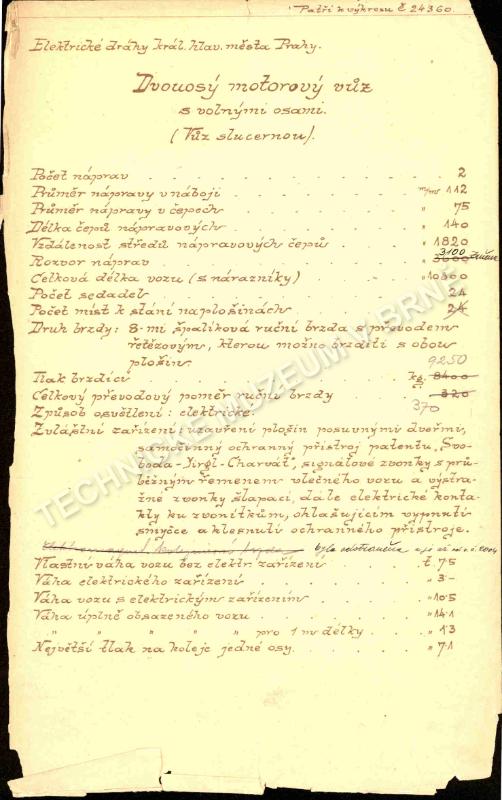 Patří k výkresu č 24360.
Elektrické dráhy král. hlav. města Prahy.
Dvouosý motorový vůz
s volnými osami.
(Vůz s lucernou).
Počet náprav . . . . . . . . . . 2
Průměr nápravy v náboji . . . . . . m/m 112
Průměr nápravy v čepech . . . . . . " 75
Délka čepů nápravových . . . . . . " 140
Vzdálenost středů nápravových čepů . . " 1820
Rozvor náprav . . . . . . . . " 3600 3100
Celková délka vozu (s nárazníky) . . . " 10300
Počet sedadel . . . . . . . . . 24
Počet míst k stání na plošinách . . . . 24
Druh brzdy: 8-mi špalíková ruční brzda s převodem
řetězovým, kterou možno říditi s obou
plošin.
9250
Tlak brzdící . . . . . . . . kg 8400
Celkový převodový poměr ruční brzdy . . 320
370
Způsob osvětlení: elektrické.
Zvláštní zařízení: uzavření plošin posuvnými dveřmi,
samočinný ochranný přístroj patentu „Svo-
boda-Jirgl-Charvát", signálové zvonky s prů-
běžným řemenem vlečného vozu a výstra-
žné zvonky šlapací, dále elektrické kontak-
ty ku zvonítkům, ohlašujícím vypnutí
smyčce a klesnutí ochranného přístroje.
byla odstraněna
Vlastní váha vozu bez elektr zařízení . . t. 7.5
Váha elektrického zařízení . . . . . " 3·-
Váha vozu s elektrickým zařízením . . . " 10.5
Váha úplně obsazeného vozu . . . . . " 14.1
" " " " pro 1 m délky . . . " 1.3
Největší tlak na koleje jedné osy . . . . " 7.1
TECHNICKÉ MUZEUM V BRNĚ